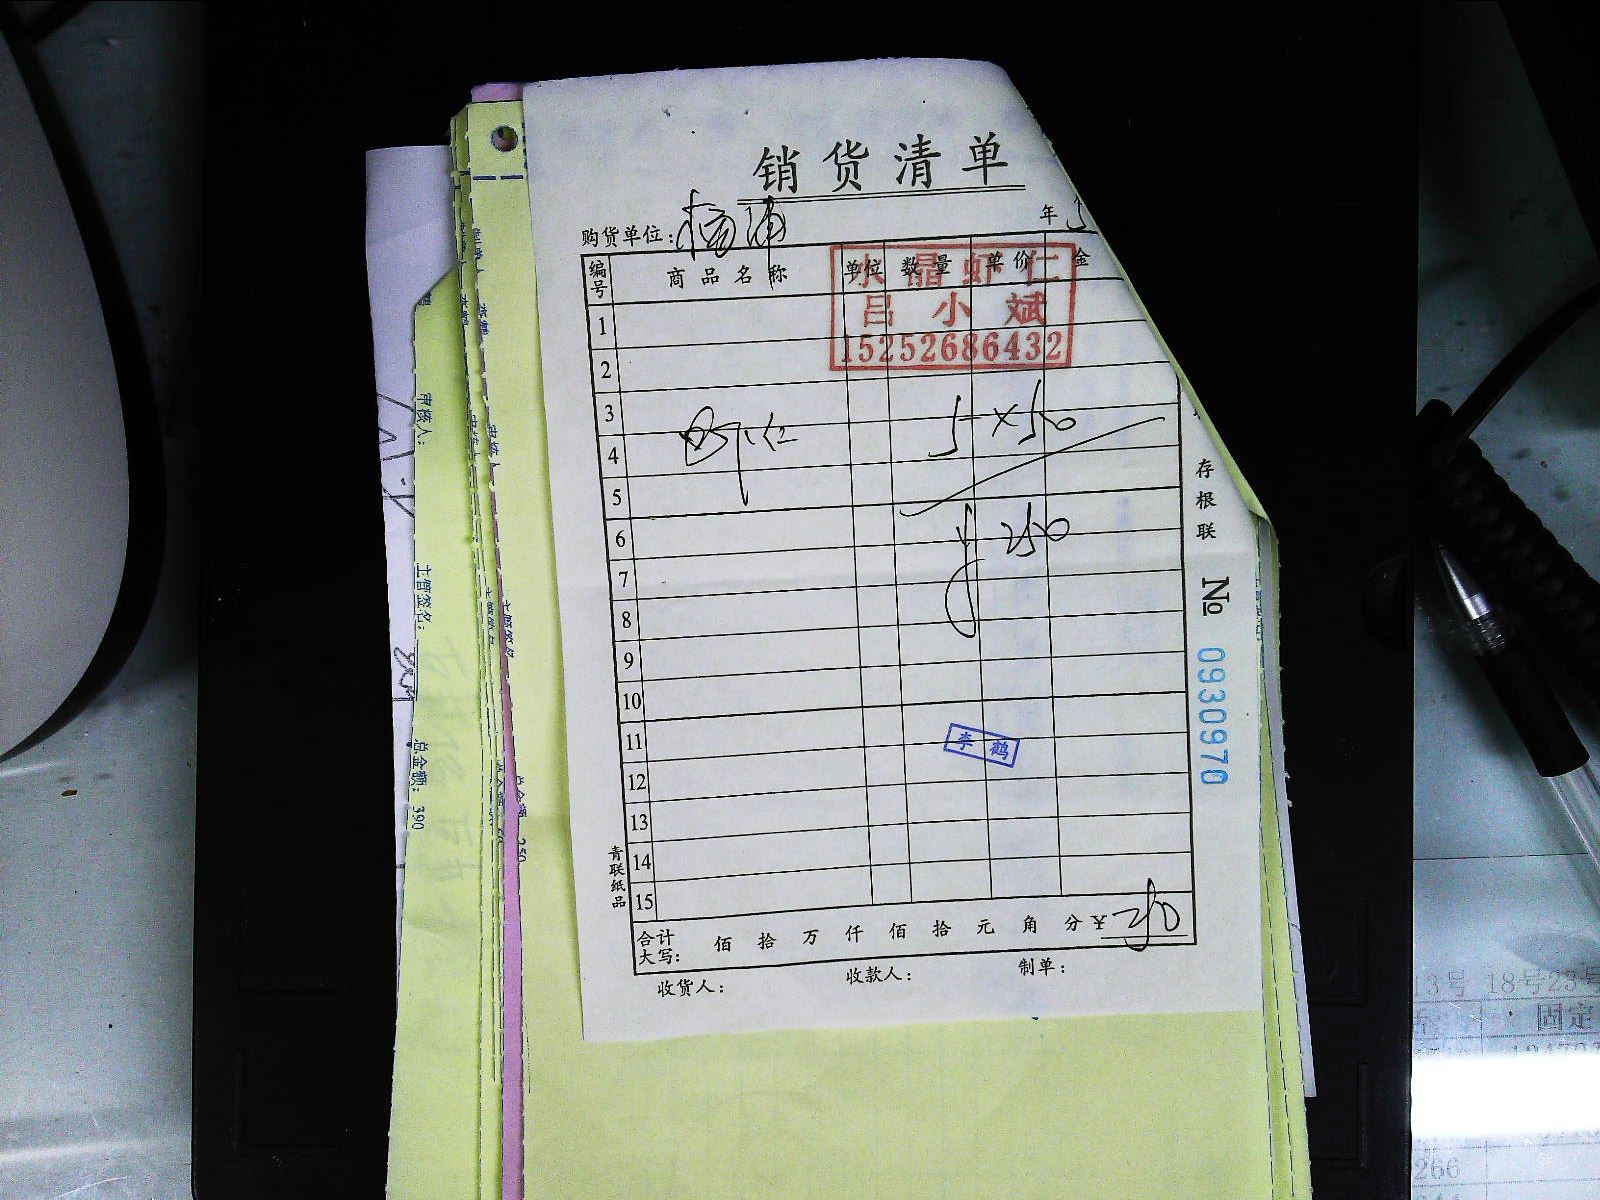 销货清单
购货单位：杨浦 年5
编号 商品名称 单位 数量 单价 金
水晶虾仁
吕小斌
15252686432
1
2
3
虾仁 5×50
4
5
6
¥250
7
8
9
10
11
李鹤
12
13
14
15
合计大写： 佰 拾 万 仟 佰 拾 元 角 分 ¥ 250
收货人： 收款人： 制单：
青联纸品
存根联
№ 0930970
审核人：
主管签名：
总金额：390
13号 18号23号
固定
266